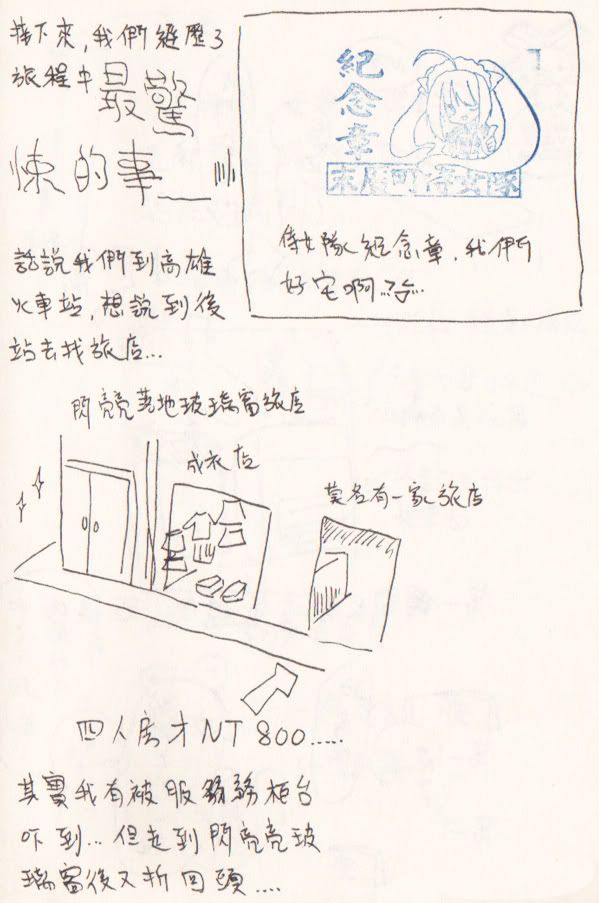 接下來,我們經歷了
旅程中最驚
悚的事__
紀念章
末廣町侍女隊
侍女隊紀念章,我們
好宅啊
話說我們到高雄
火車站,想說到後
站去找旅店...
閃亮落地玻璃窗旅店
成衣店
莫名有一家旅店
四人房才NT 800.....
其實我有被服務櫃台
吓到...但走到閃亮亮玻
璃窗後又折回頭....